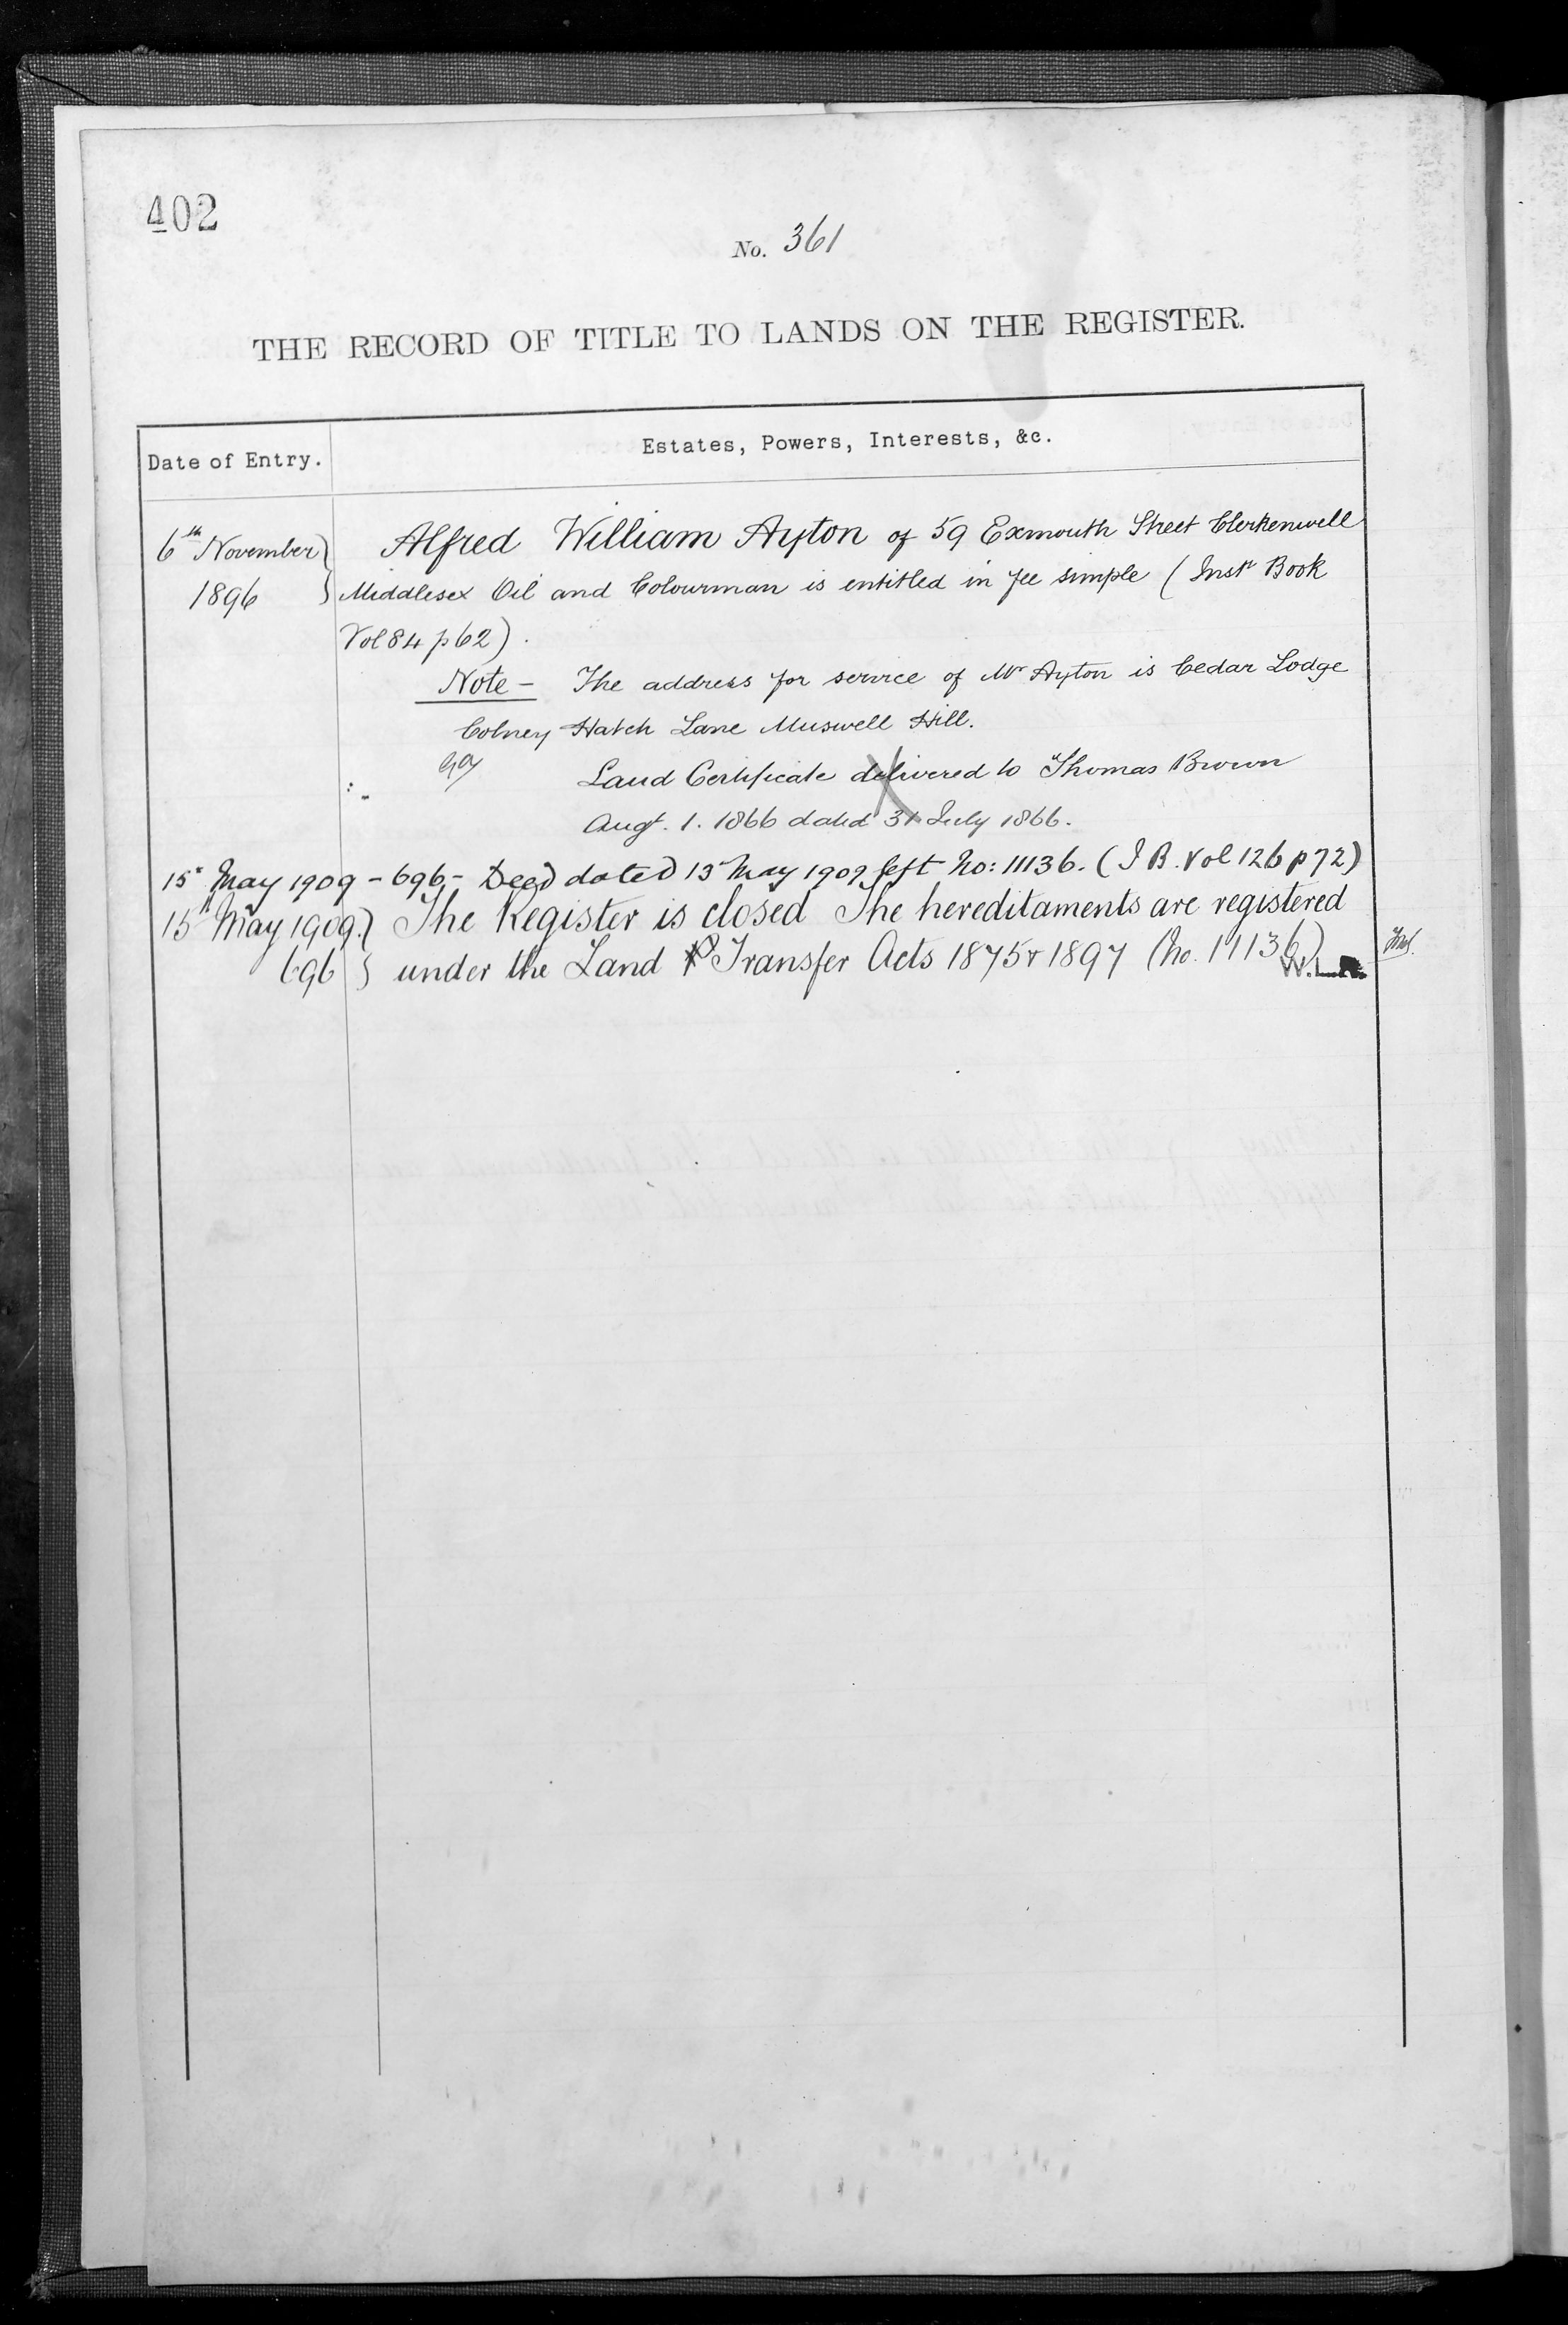 402
No. 361
THE RECORD OF TITLE TO LANDS ON THE REGISTER.
Date of Entry.
Estates, Powers, Interests, &c.
6th November
1896
Alfred William Ayton of 59 Exmouth Street Clerkenwell
Middlesex Oil and Colourman is entitled in fee simple (Instr Book
Vol 84 p 62).
Note - The address for service of Mr Ayton is Cedar Lodge
Colney Hatch Lane Muswell Hill.
Land Certificate delivered to Thomas Brown
Augt. 1. 1866 dated 31 July 1866.
15" May 1909 - 696 - Deed dated 13" May 1909 left No: 11136. (I B. Vol 126 p 72)
15" May 1909. } The Register is closed The hereditaments are registered
696 } under the Land Transfer Acts 1875 & 1897 (No. 11136)